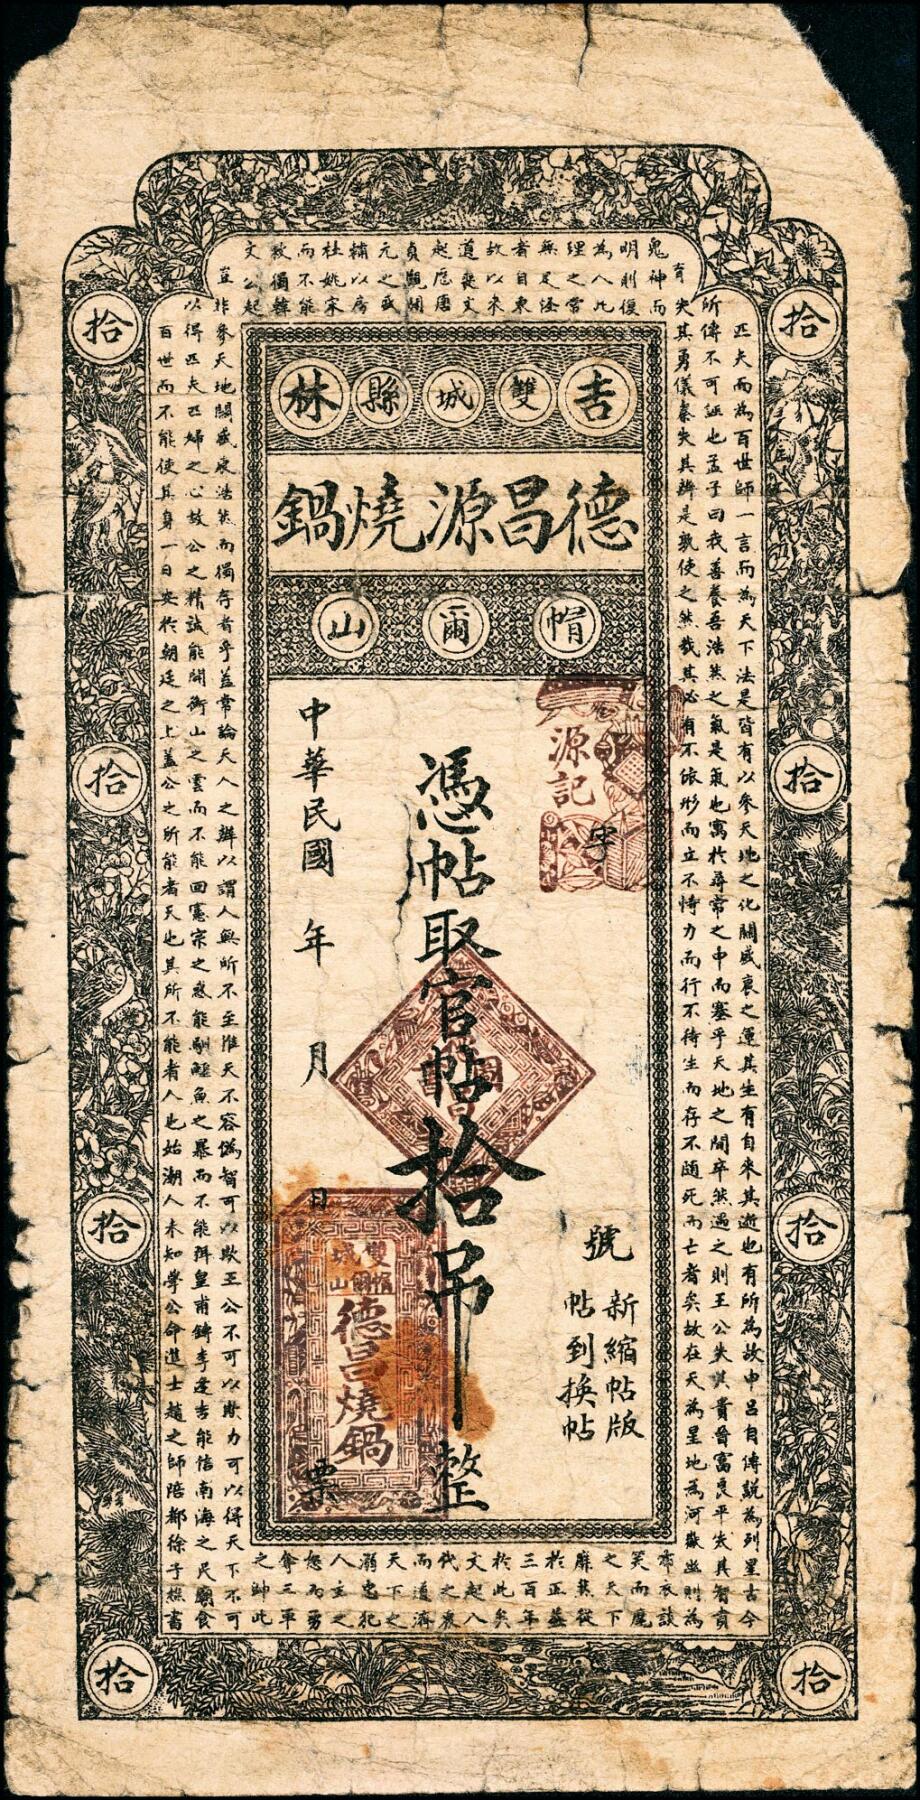 吉雙城縣林
德昌源燒鍋
帽爾山
源記
字
號
新縮帖版
帖到換帖
憑帖取官帖拾吊整
中華民國 年 月 日
票
雙城
帽爾山
德昌燒鍋
拾
拾
拾
拾
拾
拾
拾
拾
匹夫而為百世師一言而為天下法是皆有以參天地之化關盛衰之運其生有自來其逝也有所為故申呂自傳說為列星古今
所傳不可誣也孟子曰我善養吾浩然之氣是氣也寓於尋常之中而塞乎天地之間卒然遇之則王公失其貴晉富良平失其智賁
育失其勇儀秦失其辨是孰使之然哉其必有不依形而立不恃力而行不待生而存不隨死而亡者矣故在天為星地為河嶽幽則為
鬼神而
明則復
為人此
理之常
無足怪
者自東
故以來
道喪文
起歷唐
貞觀開
元之盛
輔以房
杜姚宋
而不能
救獨韓
文公起
布衣談
笑而麾
之天下
靡然從
於正蓋
三百年
於此矣
文起八
代之衰
而道濟
天下之
溺忠犯
人主之
怒而勇
奪三軍
之帥此
豈非參天地關盛衰浩然而獨存者乎蓋常論天人之辨以謂人無所不至惟天不容偽智可以欺王公不可以欺力可以得天下不可
以得匹夫匹婦之心故公之精誠能開衡山之雲而不能回憲宗之惑能馴鱷魚之暴而不能弭皇甫鎛李逢吉能信南海之民廟食
百世而不能使其身一日安於朝廷之上蓋公之所能者天也其所不能者人也始潮人未知學公命進士趙之師陪都徐子樵書